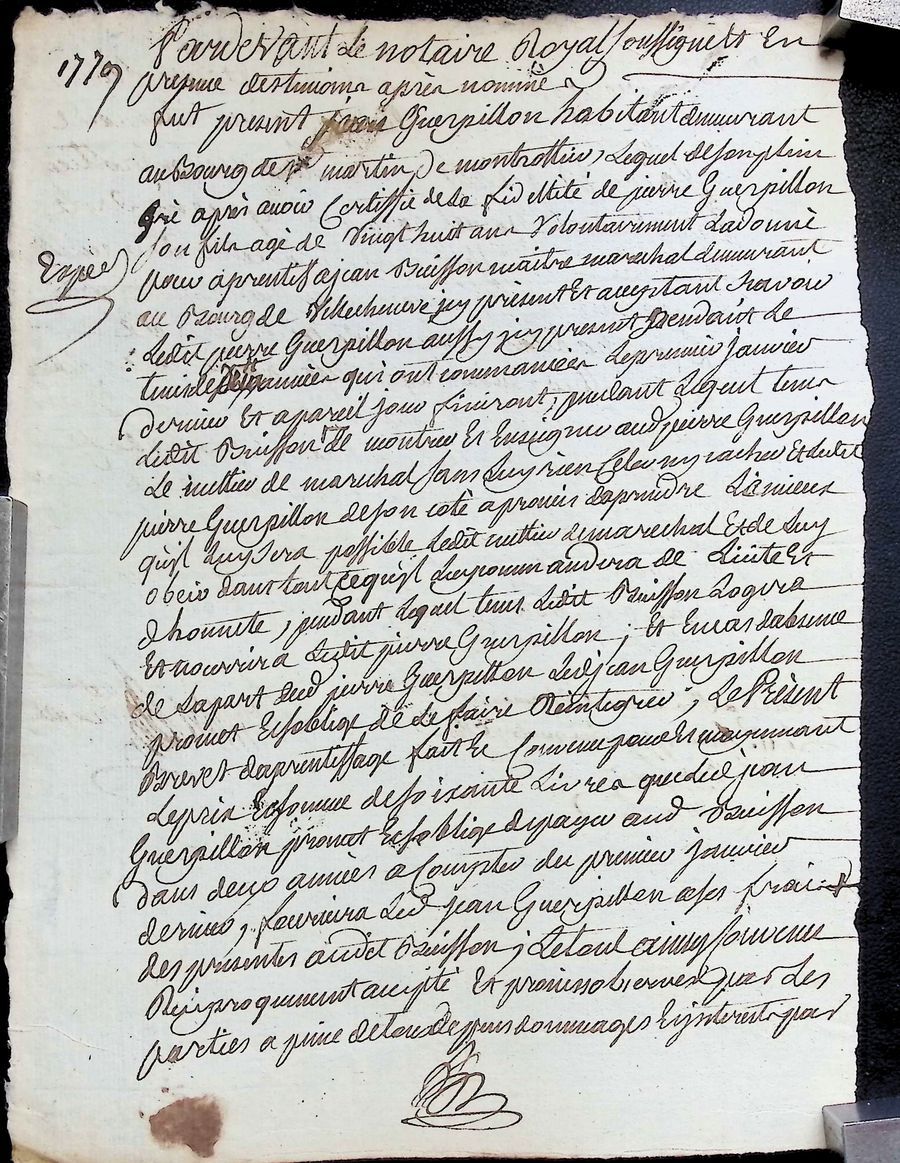 1779
Pardevant Le notaire Royal soussigné Et En
presence destemoins après nommé
fut present jean Guerpillon habitant demeurant
au Bourg de St martin De montrottier, Lequel deson plein
gré après avoir Certiffié de La fidellité de pierre Guerpillon
son fils agé de Vingt huit ans Volontairement La donné
Expée
pour aprentif a jean Buisson maitre marechal demeurant
au Bourg de Villechenève jcy présent Et acceptant sçavoir
Ledit pierre Guerpillon aussy jcy present pendant Le
tems de années qui ont commancées Lepremier janvier
dernier Et a pareil jour finiront, pendant Lequel tems
Ledit Buisson de montrer Et Enseigner aud pierre Guerpillon
Le mettier de marechal sans Luy rien Celer ny cacher Et Ledit
pierre Guerpillon deson coté a promis daprendre Lemieux
qu'jl Luy sera possible Ledit mettier demarechal Et de Luy
obeir dans tout Cequ'jl Luy commandera de Licite Et
dhonnete, pendant Lequel tems Ledit Buisson Logera
Et nourrira Ledit pierre Guerpillon; Et Encas dabsence
de Lapart dud pierre Guerpillon Led jean Guerpillon
promet Et soblige de Le faire Réintegrer; Le Présent
Brevet daprentissage fait Et Convenu pour Et moyennant
Leprix Et somme desoixante Livres que Led jean
Guerpillon promet Et soblige depayer aud Buisson
dans deux années a Compter du premier janvier
dernier, fournira Led jean Guerpillon asès frais
des presentes audit Buisson; Letout ainsy Convenu
Réciproquement accepté Et promis observer par Les
parties a peine detous depens dommages Et jnterets par